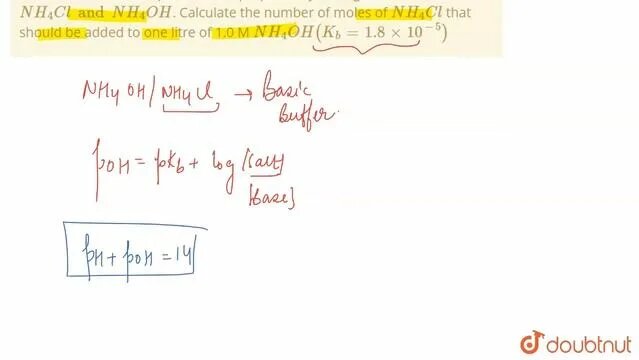 NH₄Cl and NH₄OH. Calculate the number of moles of NH₄Cl that
should be added to one litre of 1.0 M NH₄OH(K_b = 1.8 × 10⁻⁵)
NH₄OH/NH₄Cl → Basic
Buffer.
pOH = pKb + log [salt]
[Base]
pH + pOH = 14
doubtnut